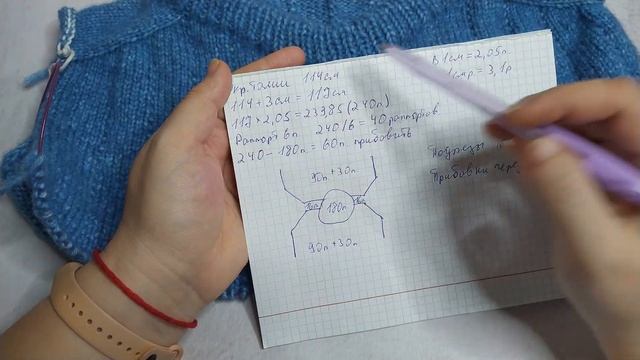 кр. талии 114см
114 + 3см = 117см
117 × 2,05 = 23385 (240п)
Раппорт 6п 240/6 = 40 раппортов
240 - 180п = 60п. прибавить
В 1см = 2,05п
1смр = 3,1р
Прибавки чере
90п + 30п
180п
90п + 30п